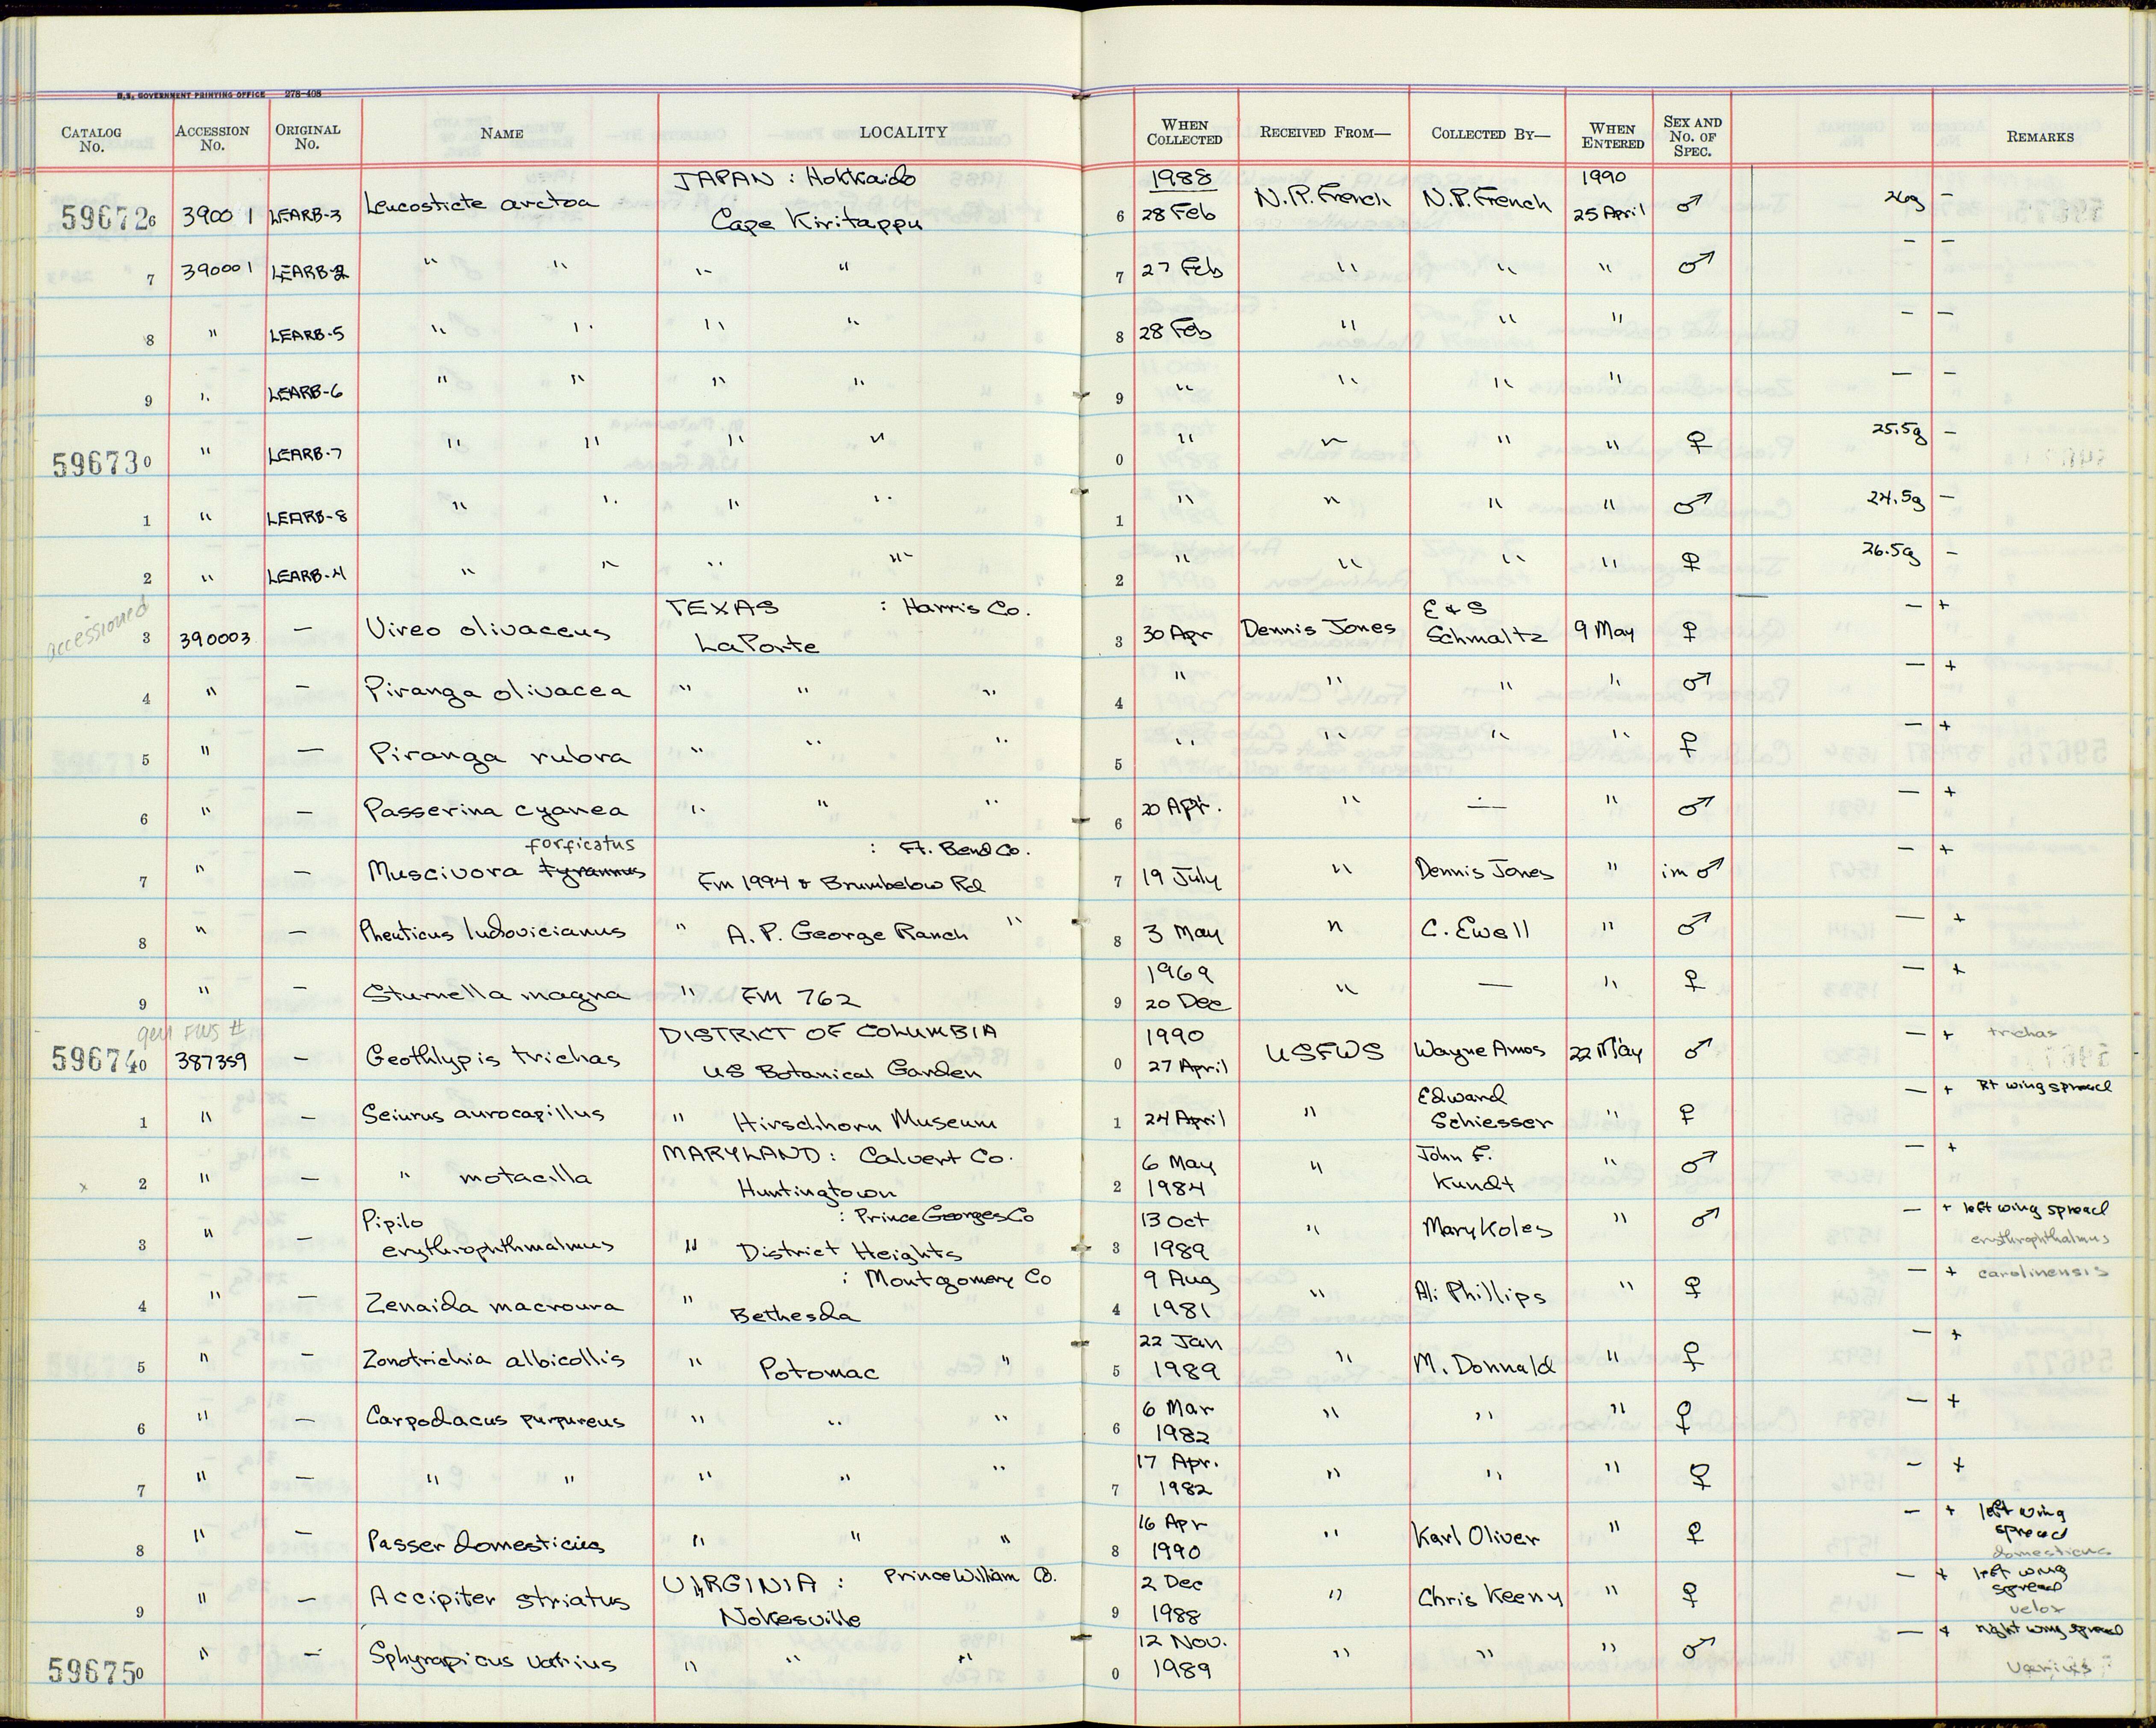 U.S. GOVERNMENT PRINTING OFFICE 278-408
CATALOG No. ACCESSION No. ORIGINAL No. NAME LOCALITY WHEN COLLECTED RECEIVED FROM— COLLECTED BY— WHEN ENTERED SEX AND No. OF SPEC. REMARKS
JAPAN : Hokkaido 1988 1990
596726 390001 LEARB-3 Leucosticte arctoa Cape Kiritappu 6 28 Feb N.R. French N.R. French 25 April ♂ 26g —
7 390001 LEARB-2 " " " " 7 27 Feb " " " ♂ — —
8 " LEARB-5 " " " " 8 28 Feb " " " — —
9 " LEARB-6 " " " " 9 " " " " — —
596730 " LEARB-7 " " " " 0 " " " " ♀ 25.5g —
1 " LEARB-8 " " " " 1 " " " " ♂ 24.5g —
2 " LEARB-4 " " " " 2 " " " " ♀ 26.5g —
accessioned TEXAS : Harris Co. E & S
3 390003 — Vireo olivaceus LaPorte 3 30 Apr Dennis Jones Schmaltz 9 May ♀ — +
4 " — Piranga olivacea " " " 4 " " " " ♂ — +
5 " — Piranga rubra " " " 5 " " " " ♀ — +
6 " — Passerina cyanea " " " 6 20 Apr. " — " ♂ — +
forficatus : Ft. Bend Co.
7 " — Muscivora tyrannus Fm 1994 & Brumbelow Rd 7 19 July " Dennis Jones " im ♂ — +
8 " — Pheuticus ludovicianus " A. P. George Ranch " 8 3 May " C. Ewell " ♂ — +
1969
9 " — Sturnella magna " FM 762 9 20 Dec " — " ♀ — +
gen FWS # DISTRICT OF COLUMBIA 1990
596740 387359 — Geothlypis trichas US Botanical Garden 0 27 April USFWS Wayne Amos 22 May ♂ — + trichas
Edward
1 " — Seiurus aurocapillus " Hirschhorn Museum 1 24 April " Schiesser " ♀ — + Rt wing spread
MARYLAND : Calvert Co. 6 May John F.
x 2 " — " motacilla Huntingtown 2 1984 " Kundt " ♂ — +
Pipilo : Prince Georges Co 13 Oct + left wing spread
3 " — erythrophthmalmus " District Heights 3 1989 " Mary Koles " ♂ — erythrophthalmus
: Montgomery Co 9 Aug
4 " — Zenaida macroura " Bethesda 4 1981 " Al: Phillips " ♀ — + carolinensis
22 Jan
5 " — Zonotrichia albicollis " Potomac " 5 1989 " M. Donnald " ♀ — +
6 Mar
6 " — Carpodacus purpureus " " " 6 1982 " " " ♀ — +
17 Apr.
7 " — " " " " " 7 1982 " " " ♀ — +
16 Apr left wing spread
8 " — Passer domesticus " " " 8 1990 " Karl Oliver " ♀ — + domesticus
VIRGINIA : Prince William Co. 2 Dec left wing spread
9 " — Accipiter striatus Nokesville 9 1988 " Chris Keeny " ♀ — + velox
12 Nov. right wing spread
596750 " — Sphyrapicus varius " " " 0 1989 " " " ♂ — + varius